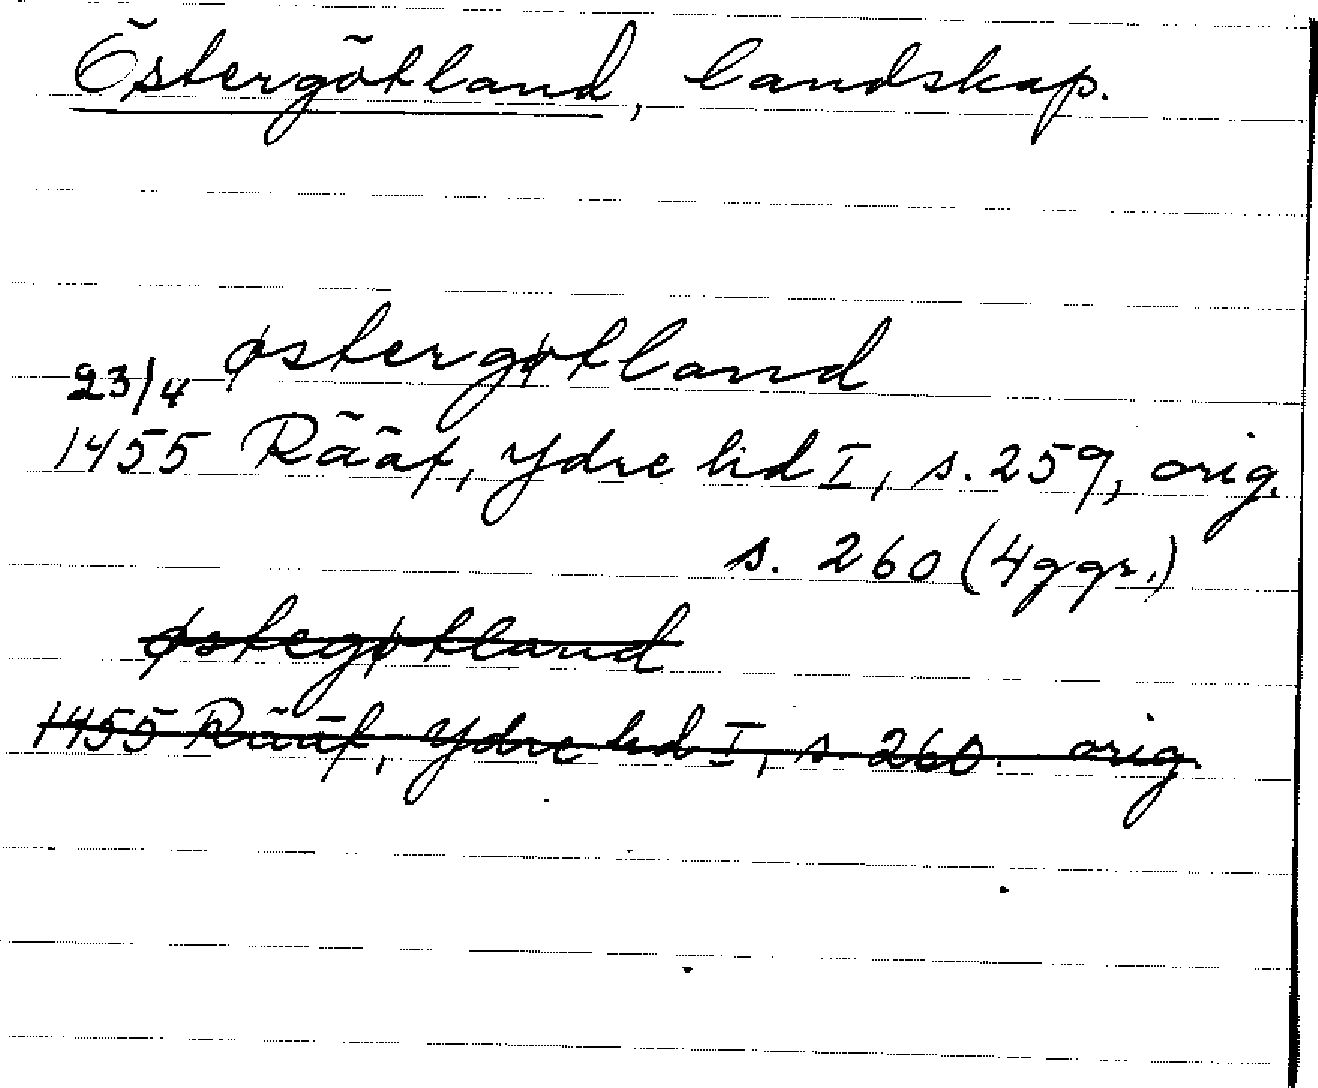 Östergötland, landskap.
østergøtland
23/4
1455 Rääf, Ydre hd I, s. 259, orig.
s. 260 (4 ggr.)
østegøtland
1455 Rääf, Ydre hd I, s. 260. orig.